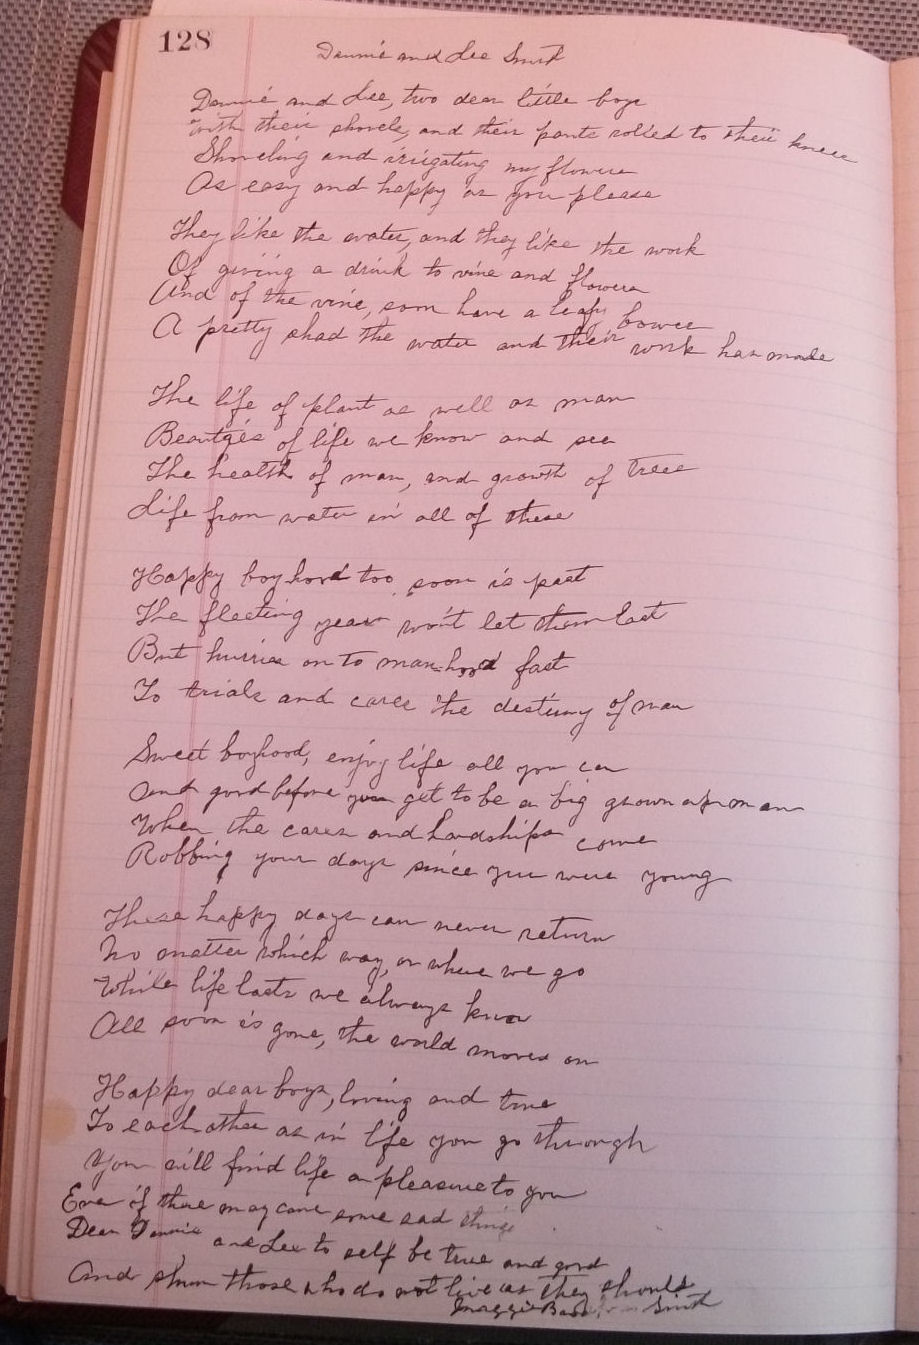 128
Dennie and Lee Smith
Dennie and Lee, two dear little boys
With their shovels, and their pants rolled to their knees
Shoveling and irrigating my flowers
As easy and happy as you please
They like the water, and they like the work
Of giving a drink to vine and flowers
And of the vine, soon have a leafy bower
A pretty shad the water and their work has made
The life of plant as well as man
of life we know and see
The health of man, and growth of trees
Life from water in all of these
Happy boyhood too soon is past
The fleeting years won't let them last
But hurries on to man-hood fast
To trials and cares the destiny of man
Sweet boyhood, enjoy life all you can
And good before you get to be a big grown up man
When the cares and hardships come
Robbing your days since you were young
These happy days can never return
No matter which way, or where we go
While life lasts we always know
All soon is gone, the world moves on
Happy dear boys, loving and true
To each other as in life you go through
You will find life a pleasure to you
Eve if there may come some sad things
Dear Dennie and Lee to self be true and good
And shun those who do not live as they should
Maggie Smith